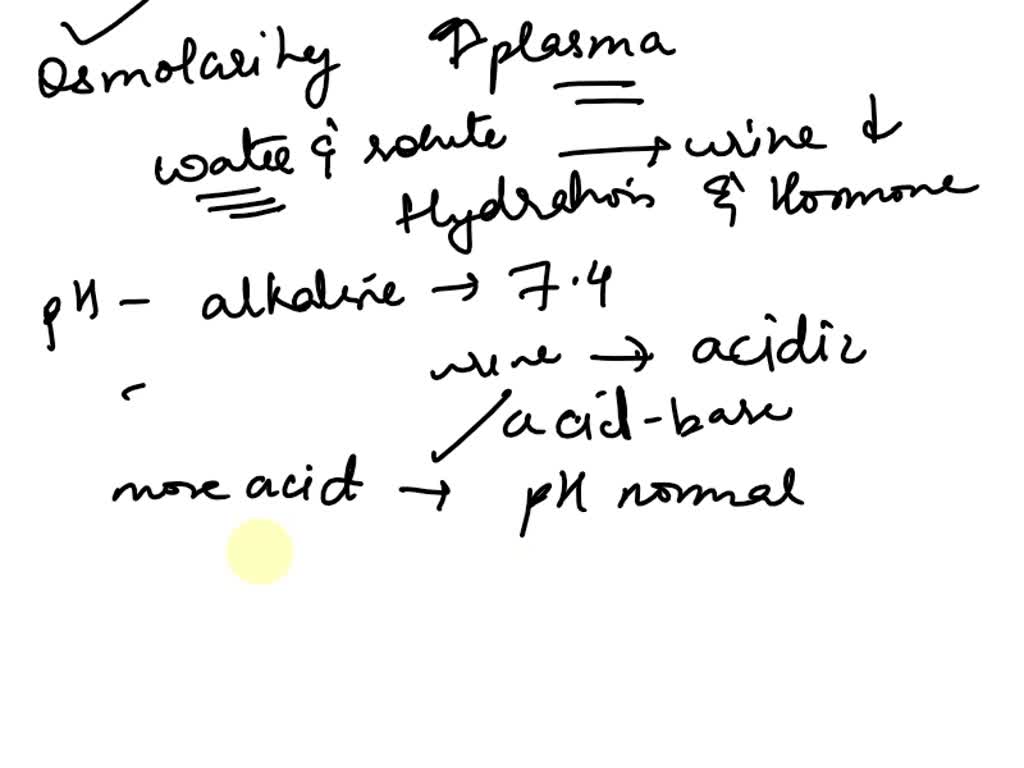 Osmolarity ↑ plasma
water & solute → urine ↓
Hydration & Hormone
pH - alkaline → 7.4
urine → acidic
acid-base
more acid → pH normal